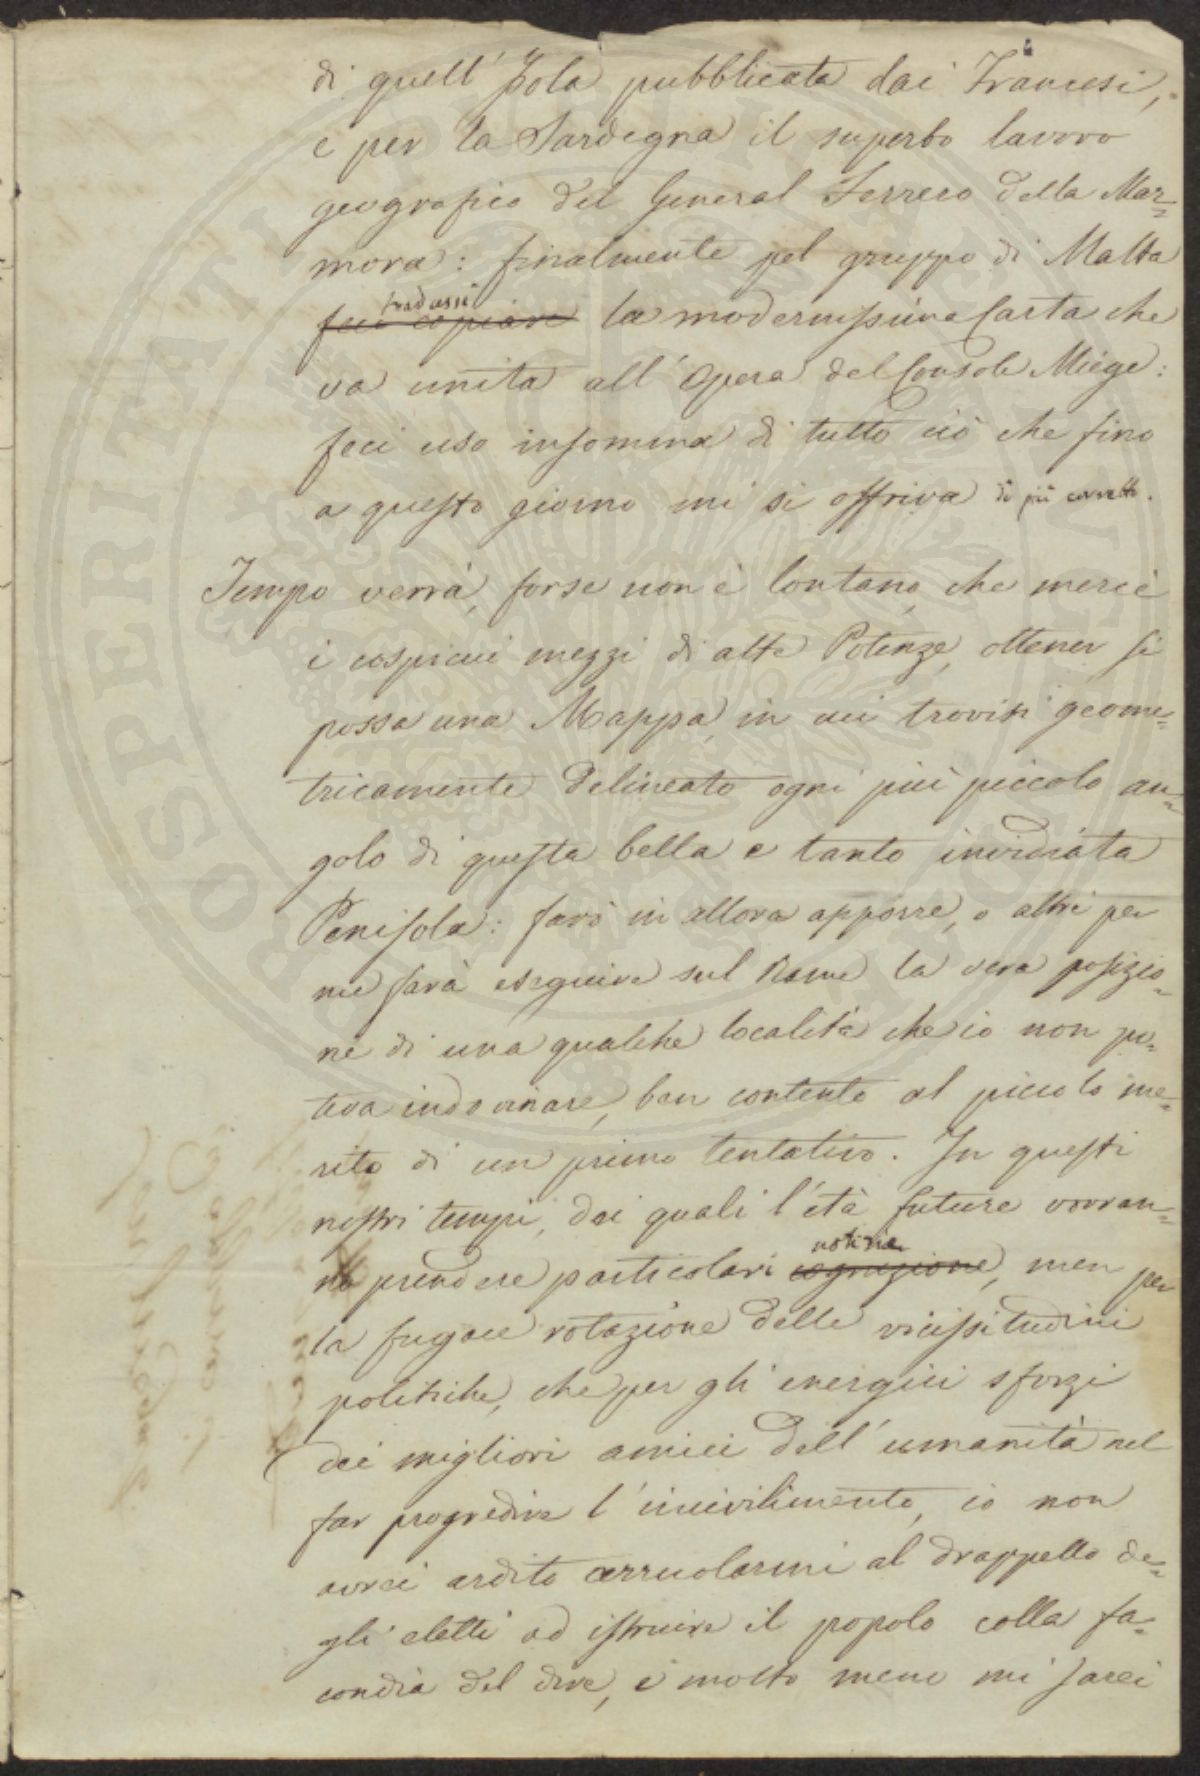 di quell'Isola pubblicata dai Francesi,
e per la Sardegna il superbo lavoro
geografico del General Ferrero della Mar=
mora: finalmente pel gruppo di Malta
tradussi
feci copiare la modernissima Carta che
va unita all'Opera del Console Miège:
feci uso insomma di tutto ciò che fino
a questo giorno mi si offriva di più corretto.
Tempo verrà, forse non è lontano, che mercè
i cospicui mezzi di alte Potenze, ottener si
possa una Mappa, in cui trovisi geome=
tricamente delineato ogni più piccolo an=
golo di questa bella e tanto invidiata
Penisola: farò in allora apporre, o altri per
me farà eseguire sul Rame la vera posizio=
ne di una qualche località che io non po=
teva indovinare, ben contento al piccolo me=
rito di un primo tentativo. In questi
nostri tempi, dei quali l'età future vorran=
no prendere particolari
notizie
cognizione, men per
la fugace rotazione delle vicissitudini
politiche, che per gli energici sforzi
dei migliori amici dell'umanità nel
far progredire l'incivilimento, io non
avrei ardito arruolarmi al drappello de=
gli eletti ad istruire il popolo colla fa=
condia del dire, e molto meno mi sarei
PROSPERITATI PUBLICAE AUGENDAE